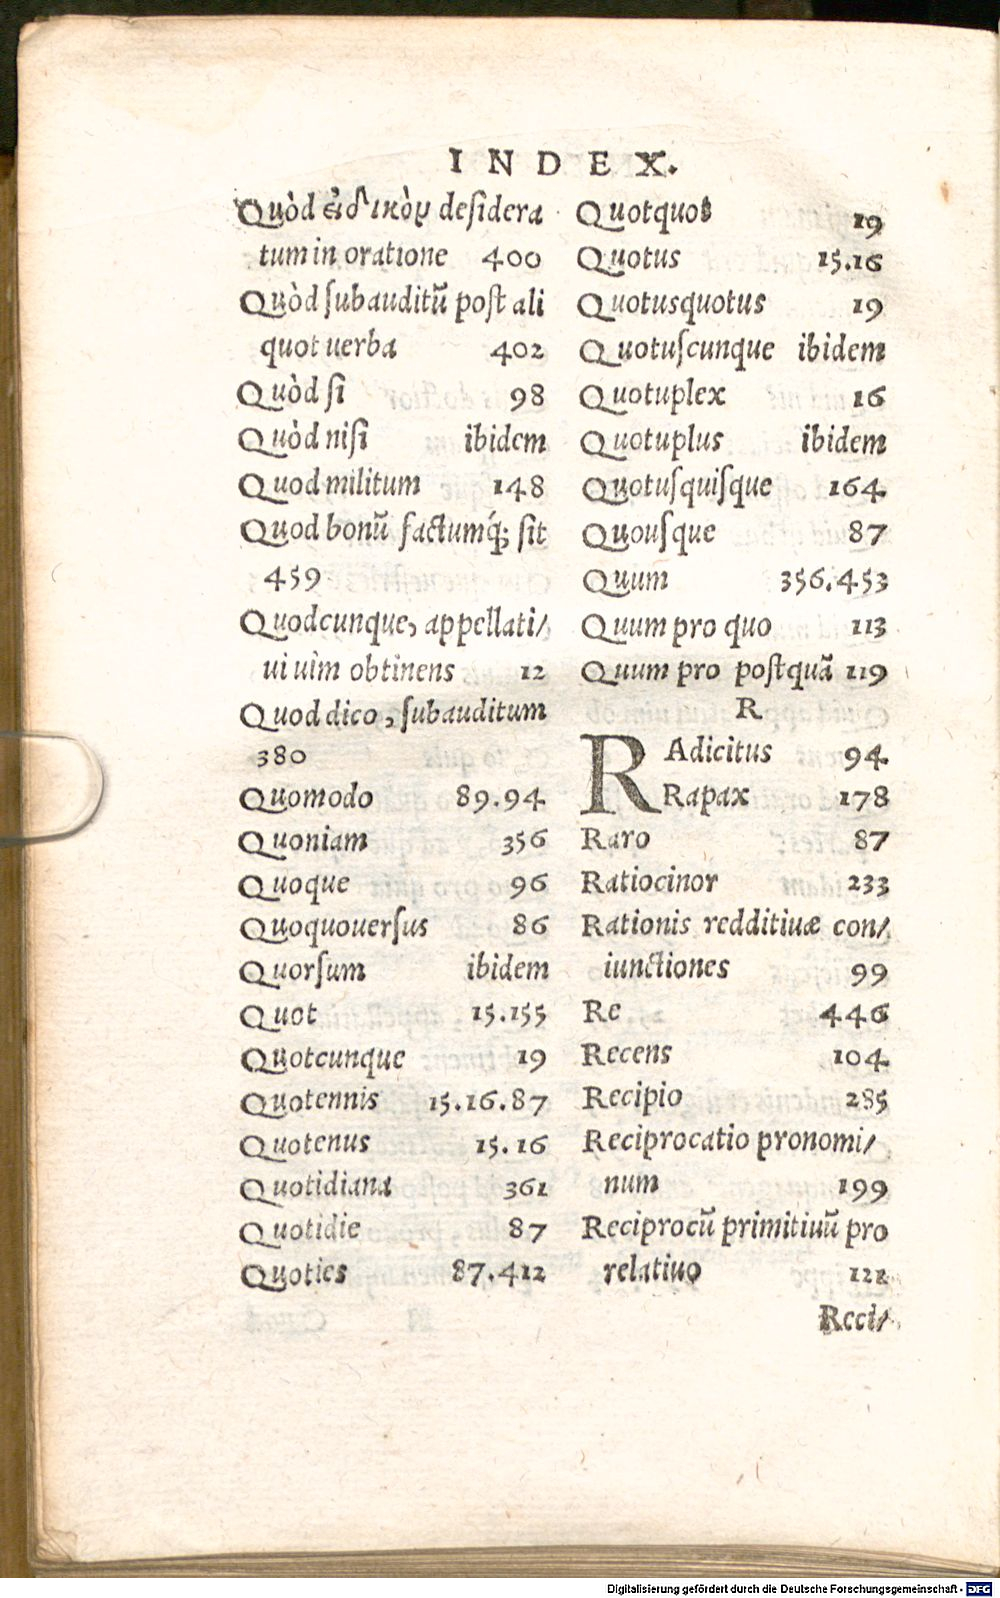 INDEX.
Quòd εἰδικὸν desidera
tum in oratione 400
Quòd ſubauditū poſt ali
quot uerba 402
Quòd ſi 98
Quòd niſi ibidem
Quod militum 148
Quod bonū factumq́; sit
459
Quodcunque, appellati/
ui uim obtinens 12
Quod dico, ſubauditum
380
Quomodo 89.94
Quoniam 356
Quoque 96
Quoquouerſus 86
Quorſum ibidem
Quot 15.155
Quotcunque 19
Quotennis 15.16.87
Quotenus 15.16
Quotidiana 361
Quotidie 87
Quoties 87.412
Quotquot 19
Quotus 15.16
Quotusquotus 19
Quotuſcunque ibidem
Quotuplex 16
Quotuplus ibidem
Quotuſquiſque 164
Quouſque 87
Quum 356.453
Quum pro quo 113
Quum pro poſtquā 119
R
RAdicitus 94
Rapax 178
Raro 87
Ratiocinor 233
Rationis redditiuæ con/
iunctiones 99
Re 446
Recens 104
Recipio 285
Reciprocatio pronomi/
num 199
Reciprocū primitiuū pro
relatiuo 121
Reci/
Digitalisierung gefördert durch die Deutsche Forschungsgemeinschaft - DFG